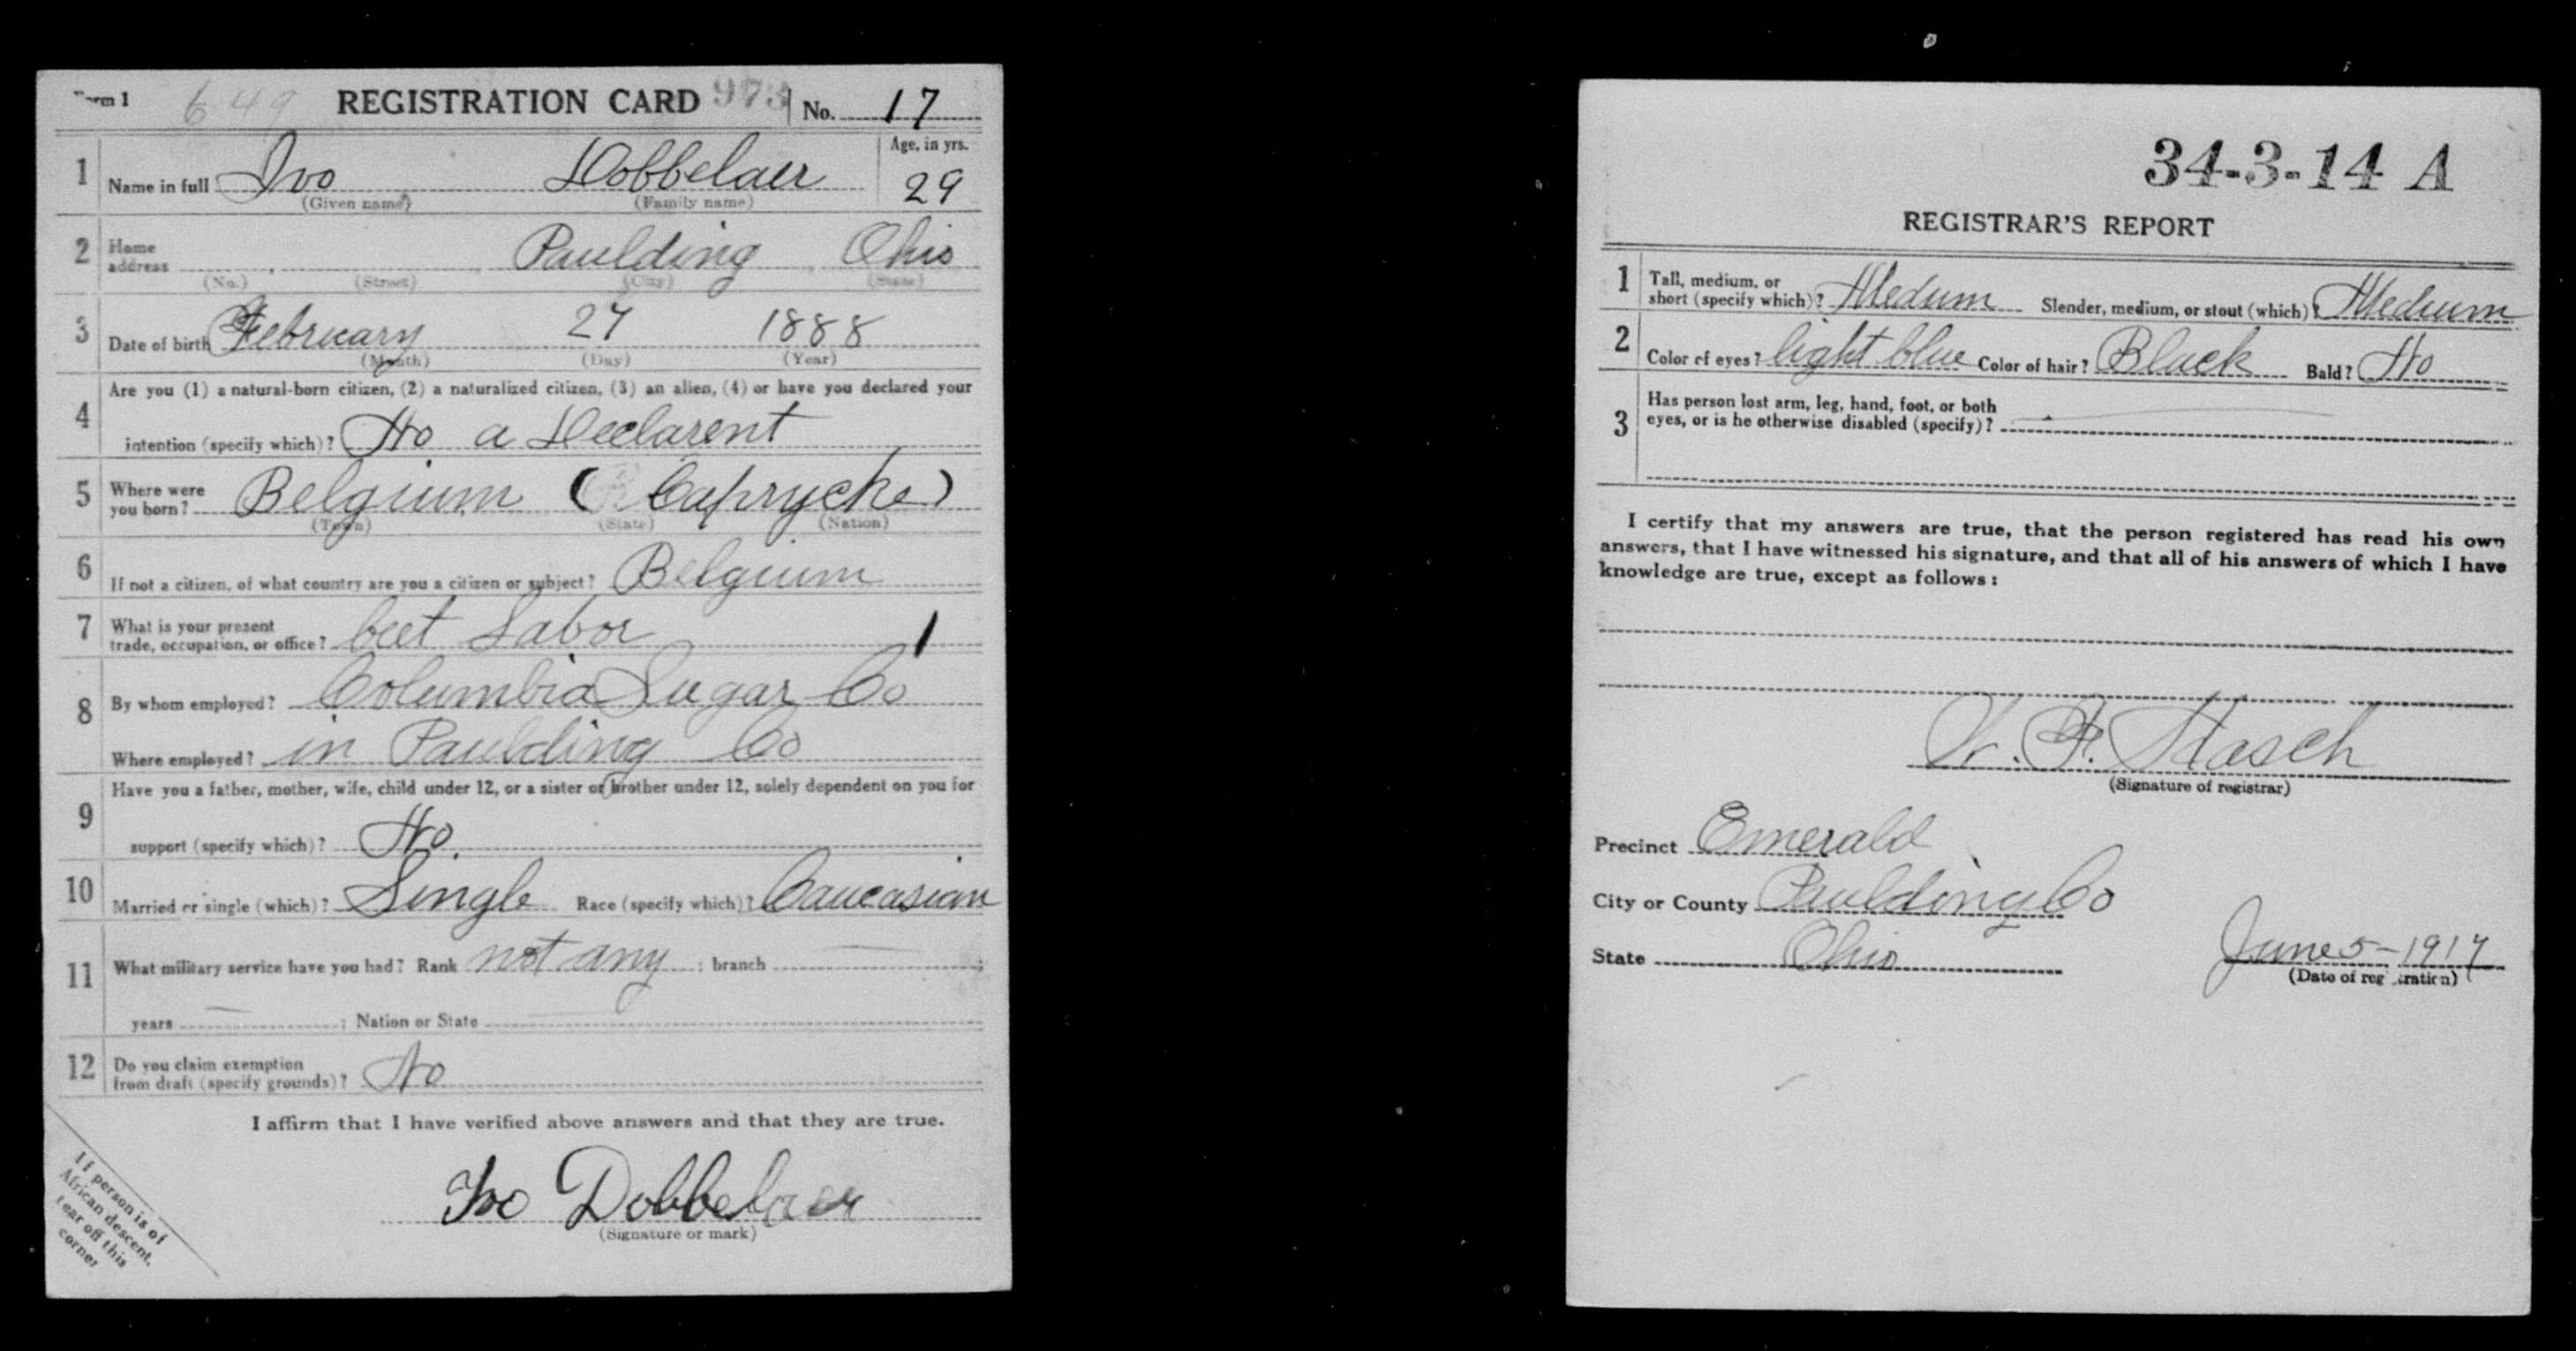 Form 1 649 REGISTRATION CARD 973 No. 17
1 Name in full Ivo Dobbelaer Age, in yrs. 29
(Given name) (Family name)
2 Home address Paulding Ohio
(No.) (Street) (City) (State)
3 Date of birth February 27 1888
(Month) (Day) (Year)
4 Are you (1) a natural-born citizen, (2) a naturalized citizen, (3) an alien, (4) or have you declared your
intention (specify which)? No a Declarent
5 Where were you born? Belgium (Caprycke)
(Town) (State) (Nation)
6 If not a citizen, of what country are you a citizen or subject? Belgium
7 What is your present trade, occupation, or office? beet Labor 1
8 By whom employed? Columbia Sugar Co
Where employed? in Paulding Co
9 Have you a father, mother, wife, child under 12, or a sister or brother under 12, solely dependent on you for
support (specify which)? No.
10 Married or single (which)? Single Race (specify which)? Caucasian
11 What military service have you had? Rank not any ; branch ;
years ; Nation or State
12 Do you claim exemption from draft (specify grounds)? No
I affirm that I have verified above answers and that they are true.
Ivo Dobbelaer
(Signature or mark)
If person is of
African descent,
tear off this
corner
34-3-14 A
REGISTRAR'S REPORT
1 Tall, medium, or short (specify which)? Medium Slender, medium, or stout (which)? Medium
2 Color of eyes? light blue Color of hair? Black Bald? No
3 Has person lost arm, leg, hand, foot, or both
eyes, or is he otherwise disabled (specify)?
I certify that my answers are true, that the person registered has read his own
answers, that I have witnessed his signature, and that all of his answers of which I have
knowledge are true, except as follows:
(Signature of registrar)
Precinct Emerald
City or County Paulding Co
State Ohio June 5-1917
(Date of registration)